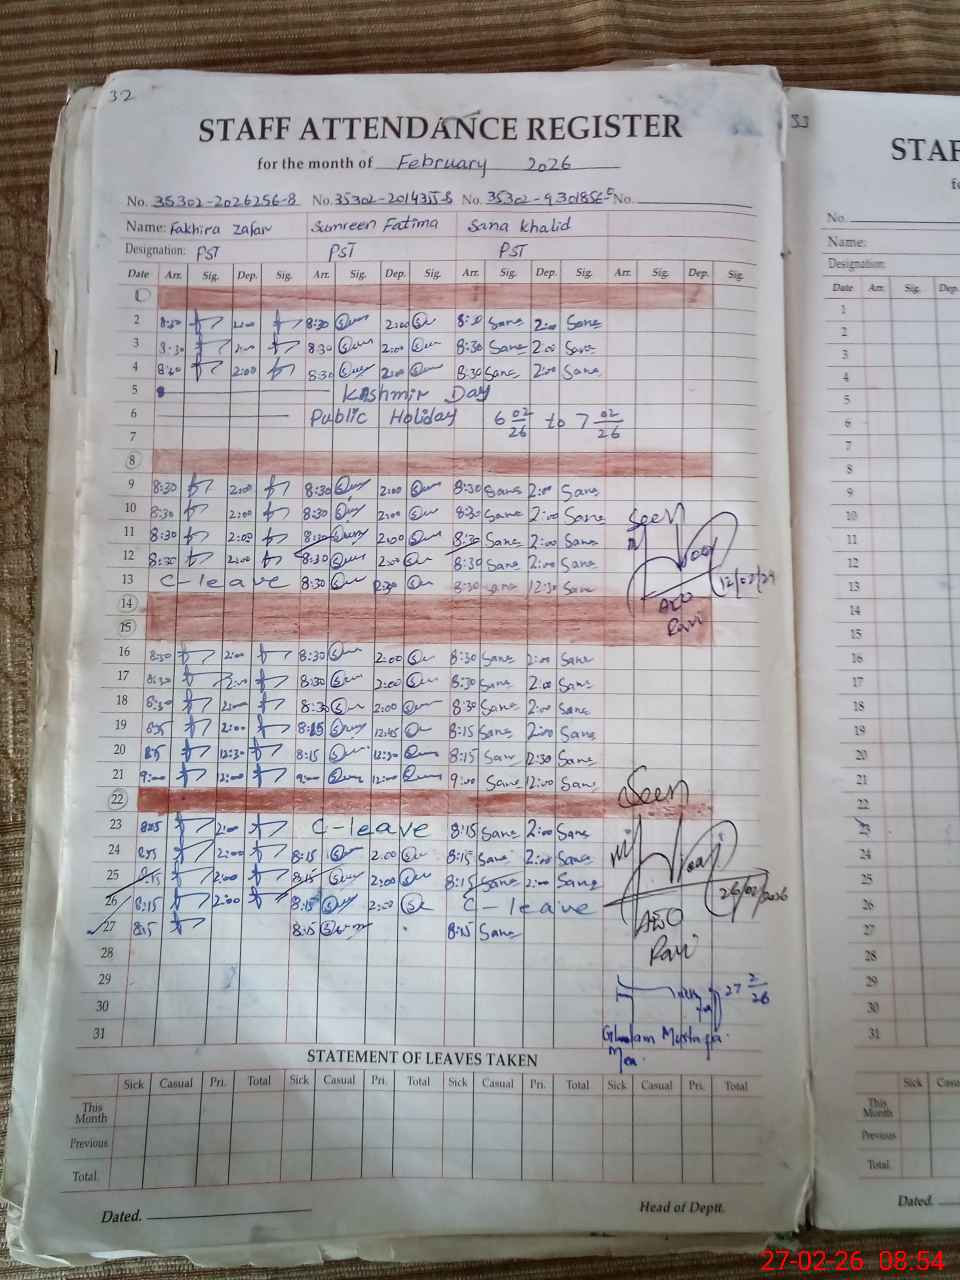 32
STAFF ATTENDANCE REGISTER
for the month of February 2026
No. 35302-2026256-8 No. 35302-2014355-8 No. 35302-9301856-5 No.
Name: Fakhira Zafar Sumreen Fatima Sana Khalid
Designation: PST PST PST
Date Arr. Sig. Dep. Sig. Arr. Sig. Dep. Sig. Arr. Sig. Dep. Sig. Arr. Sig. Dep. Sig.
1
2 8:30 2:00 8:30 2:00 8:30 Sana 2:00 Sana
3 8:30 2:00 8:30 2:00 8:30 Sana 2:00 Sana
4 8:30 2:00 8:30 2:00 8:30 Sana 2:00 Sana
5 Kashmir Day
6 Public Holiday 6 02/26 to 7 02/26
7
8
9 8:30 2:00 8:30 2:00 8:30 Sana 2:00 Sana
10 8:30 2:00 8:30 2:00 8:30 Sana 2:00 Sana Seen
11 8:30 2:00 8:30 2:00 8:30 Sana 2:00 Sana
12 8:30 2:00 8:30 2:00 8:30 Sana 2:00 Sana
13 C-leave 8:30 12:30 8:30 Sana 12:30 Sana
AEO
Ravi
14
15
16 8:30 2:00 8:30 2:00 8:30 Sana 2:00 Sana
17 8:30 2:00 8:30 2:00 8:30 Sana 2:00 Sana
18 8:30 2:00 8:30 2:00 8:30 Sana 2:00 Sana
19 8:15 2:00 8:15 12:45 8:15 Sana 2:00 Sana
20 8:15 12:30 8:15 12:30 8:15 Sana 12:30 Sana
21 9:00 12:00 9:00 12:00 9:00 Sana 12:00 Sana
22 Seen
23 8:15 2:00 C-leave 8:15 Sana 2:00 Sana
24 8:15 2:00 8:15 2:00 8:15 Sana 2:00 Sana
25 8:15 2:00 8:15 2:00 8:15 Sana 2:00 Sana
26 8:15 2:00 8:15 2:00 C-leave 26/02/2026
27 8:15 8:15 8:15 Sana AEO
28 Ravi
29 27 2/26
30
31 Ghulam Mustafa
Mea.
STATEMENT OF LEAVES TAKEN
Sick Casual Pri. Total Sick Casual Pri. Total Sick Casual Pri. Total Sick Casual Pri. Total
This Month
Previous
Total.
Dated. Head of Deptt.
33
STAF
fo
No.
Name:
Designation:
Date Arr. Sig. Dep.
1
2
3
4
5
6
7
8
9
10
11
12
13
14
15
16
17
18
19
20
21
22
23
24
25
26
27
28
29
30
31
Sick Casu
This Month
Previous
Total.
Dated.
27-02-26 08:54